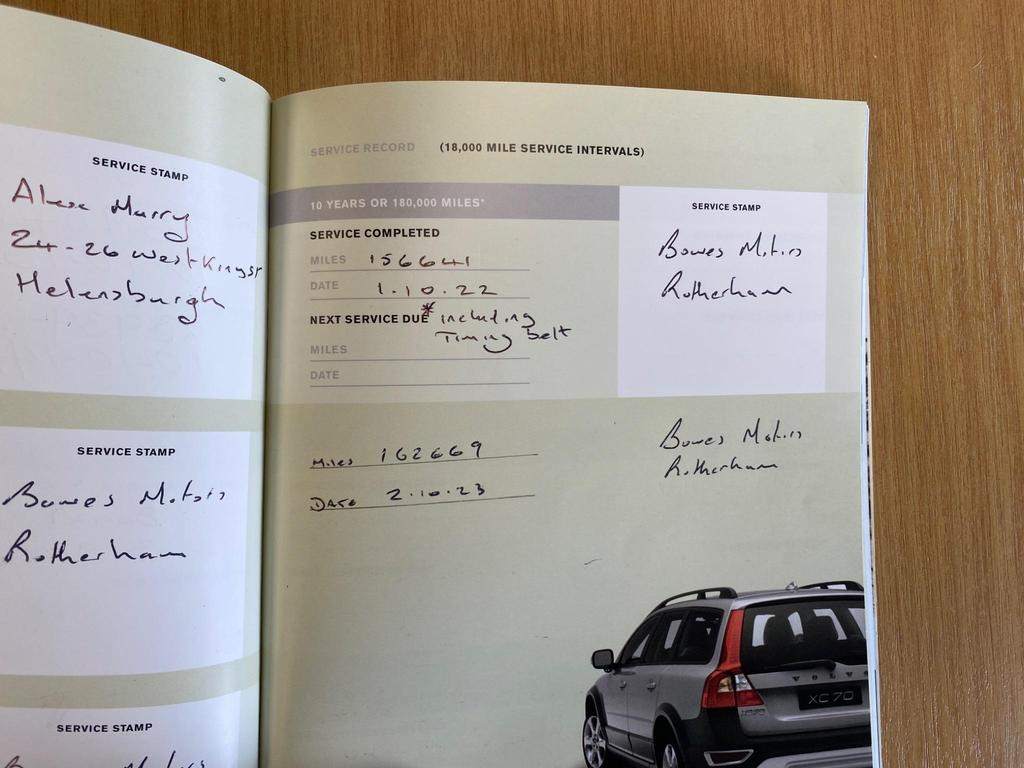 SERVICE STAMP
Murry
24-26 West Kingst
Helensburgh
SERVICE STAMP
Bowes Motors
Rotherham
SERVICE STAMP
Bowes Motors
SERVICE RECORD (18,000 MILE SERVICE INTERVALS)
10 YEARS OR 180,000 MILES*
SERVICE COMPLETED
MILES 156641
DATE 1.10.22
NEXT SERVICE DUE * including
Timing belt
MILES
DATE
SERVICE STAMP
Bowes Motors
Rotherham
Miles 162669
Date 2.10.23
Bowes Motors
Rotherham
VOLVO
XC70